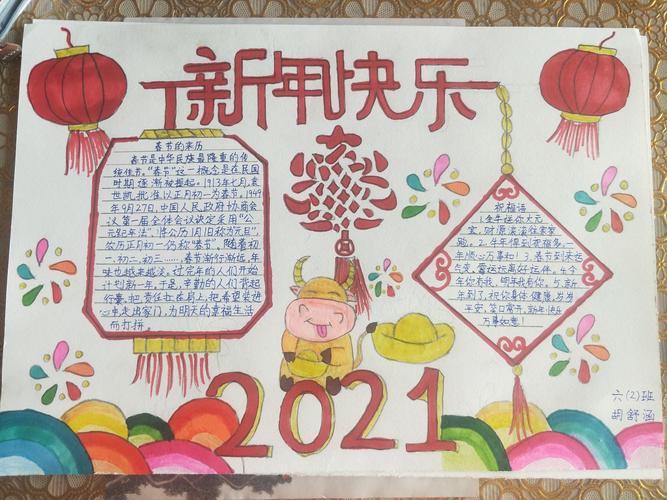 新年快乐
春节的来历
春节是中华民族最隆重的传
统佳节。"春节"这一概念是在民国
时期逐渐被提起。1913年七月,袁
世凯批准以正月初一为春节。1949
年9月27日,中国人民政府协商会
议第一届全体会议决定采用"公
元纪年法",将公历1月1日称为元旦",
农历正月初一仍称"春节"、随着初
一、初二、初三……春节渐行渐远,年
味也越来越淡。过完年的人们开始
计划新一年。于是,辛勤的人们背起
行囊,把责任扛在肩上,把希望装进
心中走出家门,为明天的幸福生活
而打拼。
祝福语
1.金牛送你大元
宝,财源滚滚往家
跑。2.牛年得到祝福多,一
年顺心万事和!3.春节到来运
气变,霉运远离好运伴。4.今
年你有我,明年我有你。5.新
年到了,祝你身体健康,岁岁
平安,笑口常开,新年快乐
万事如意!
2021
六(2)班
胡舒涵